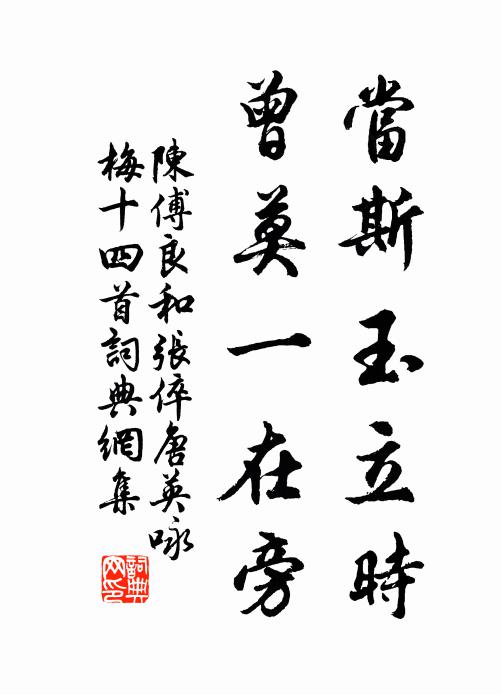 當斯玉立時
曾莫一在旁
陳傅良和張倅唐英咏
梅十四首詞典網集
詞典網印